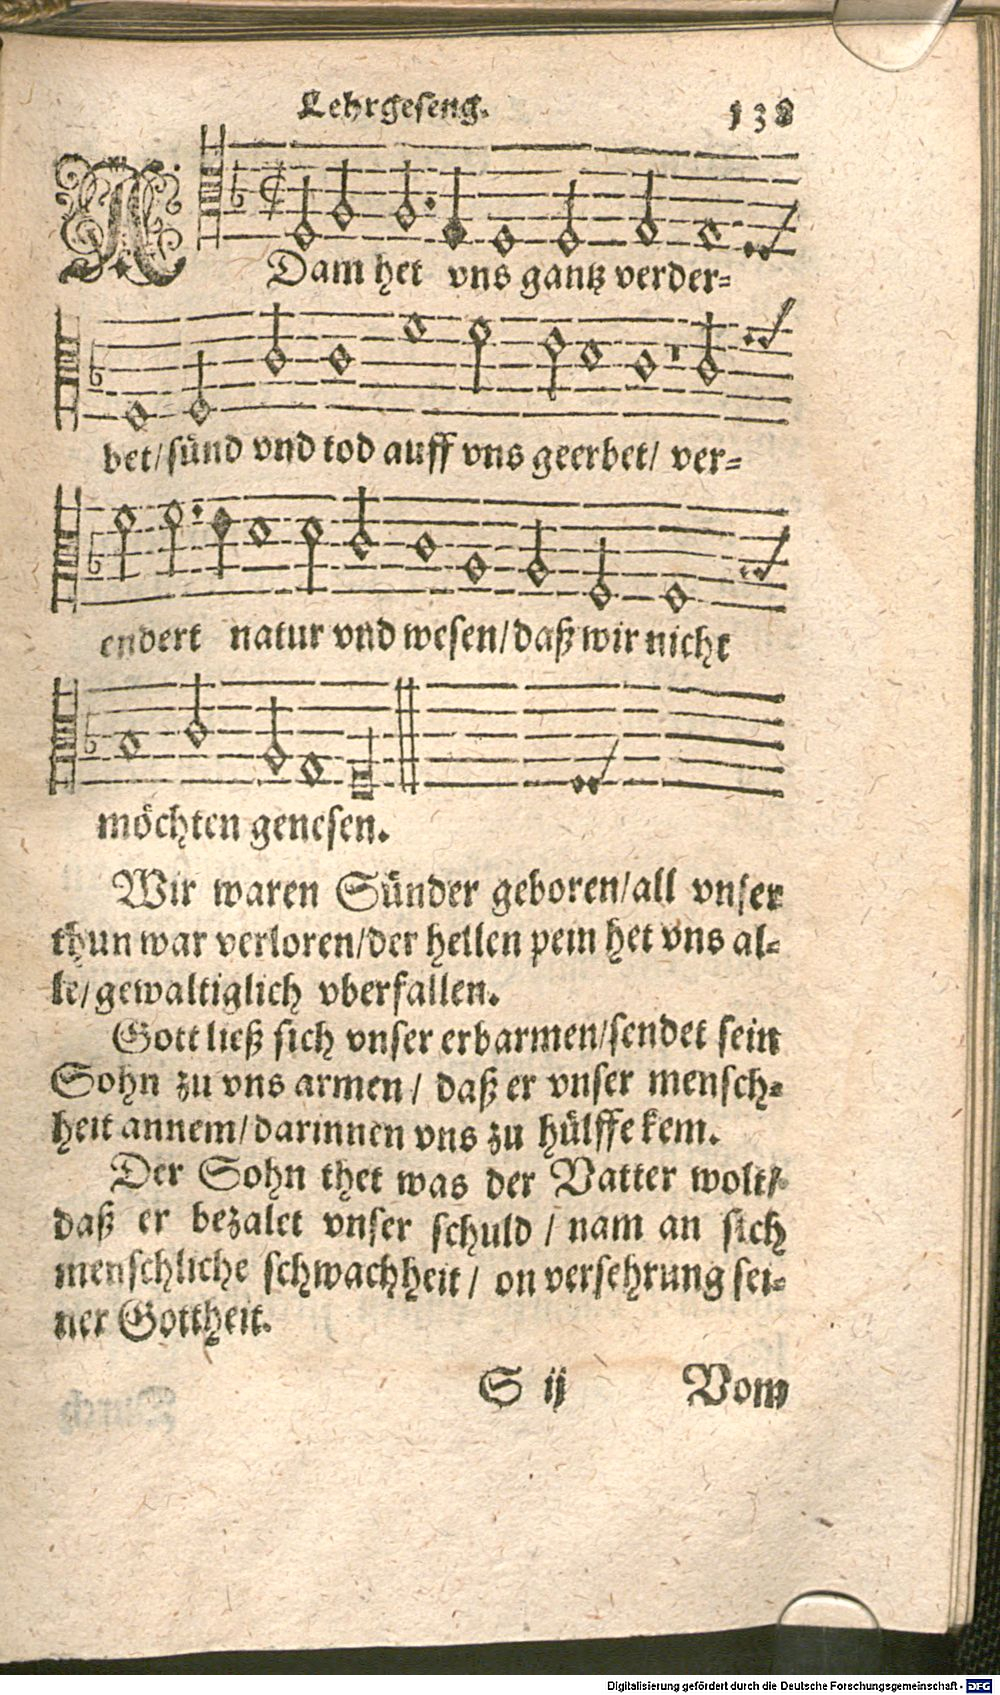 Lehrgeseng. 138
ADam het vns gantz verder=
bet/sünd vnd tod auff vns geerbet/ ver=
endert natur vnd wesen/daß wir nicht
möchten genesen.
Wir waren Sünder geboren/all vnser
thun war verloren/der hellen pein het vns al=
le/gewaltiglich vberfallen.
Gott ließ sich vnser erbarmen/sendet sein
Sohn zu vns armen/ daß er vnser mensch=
heit annem/darinnen vns zu hülffe kem.
Der Sohn thet was der Vatter wolt/
daß er bezalet vnser schuld / nam an sich
menschliche schwachheit/ on versehrung sei=
ner Gottheit.
S ij Vom
Digitalisierung gefördert durch die Deutsche Forschungsgemeinschaft - DFG